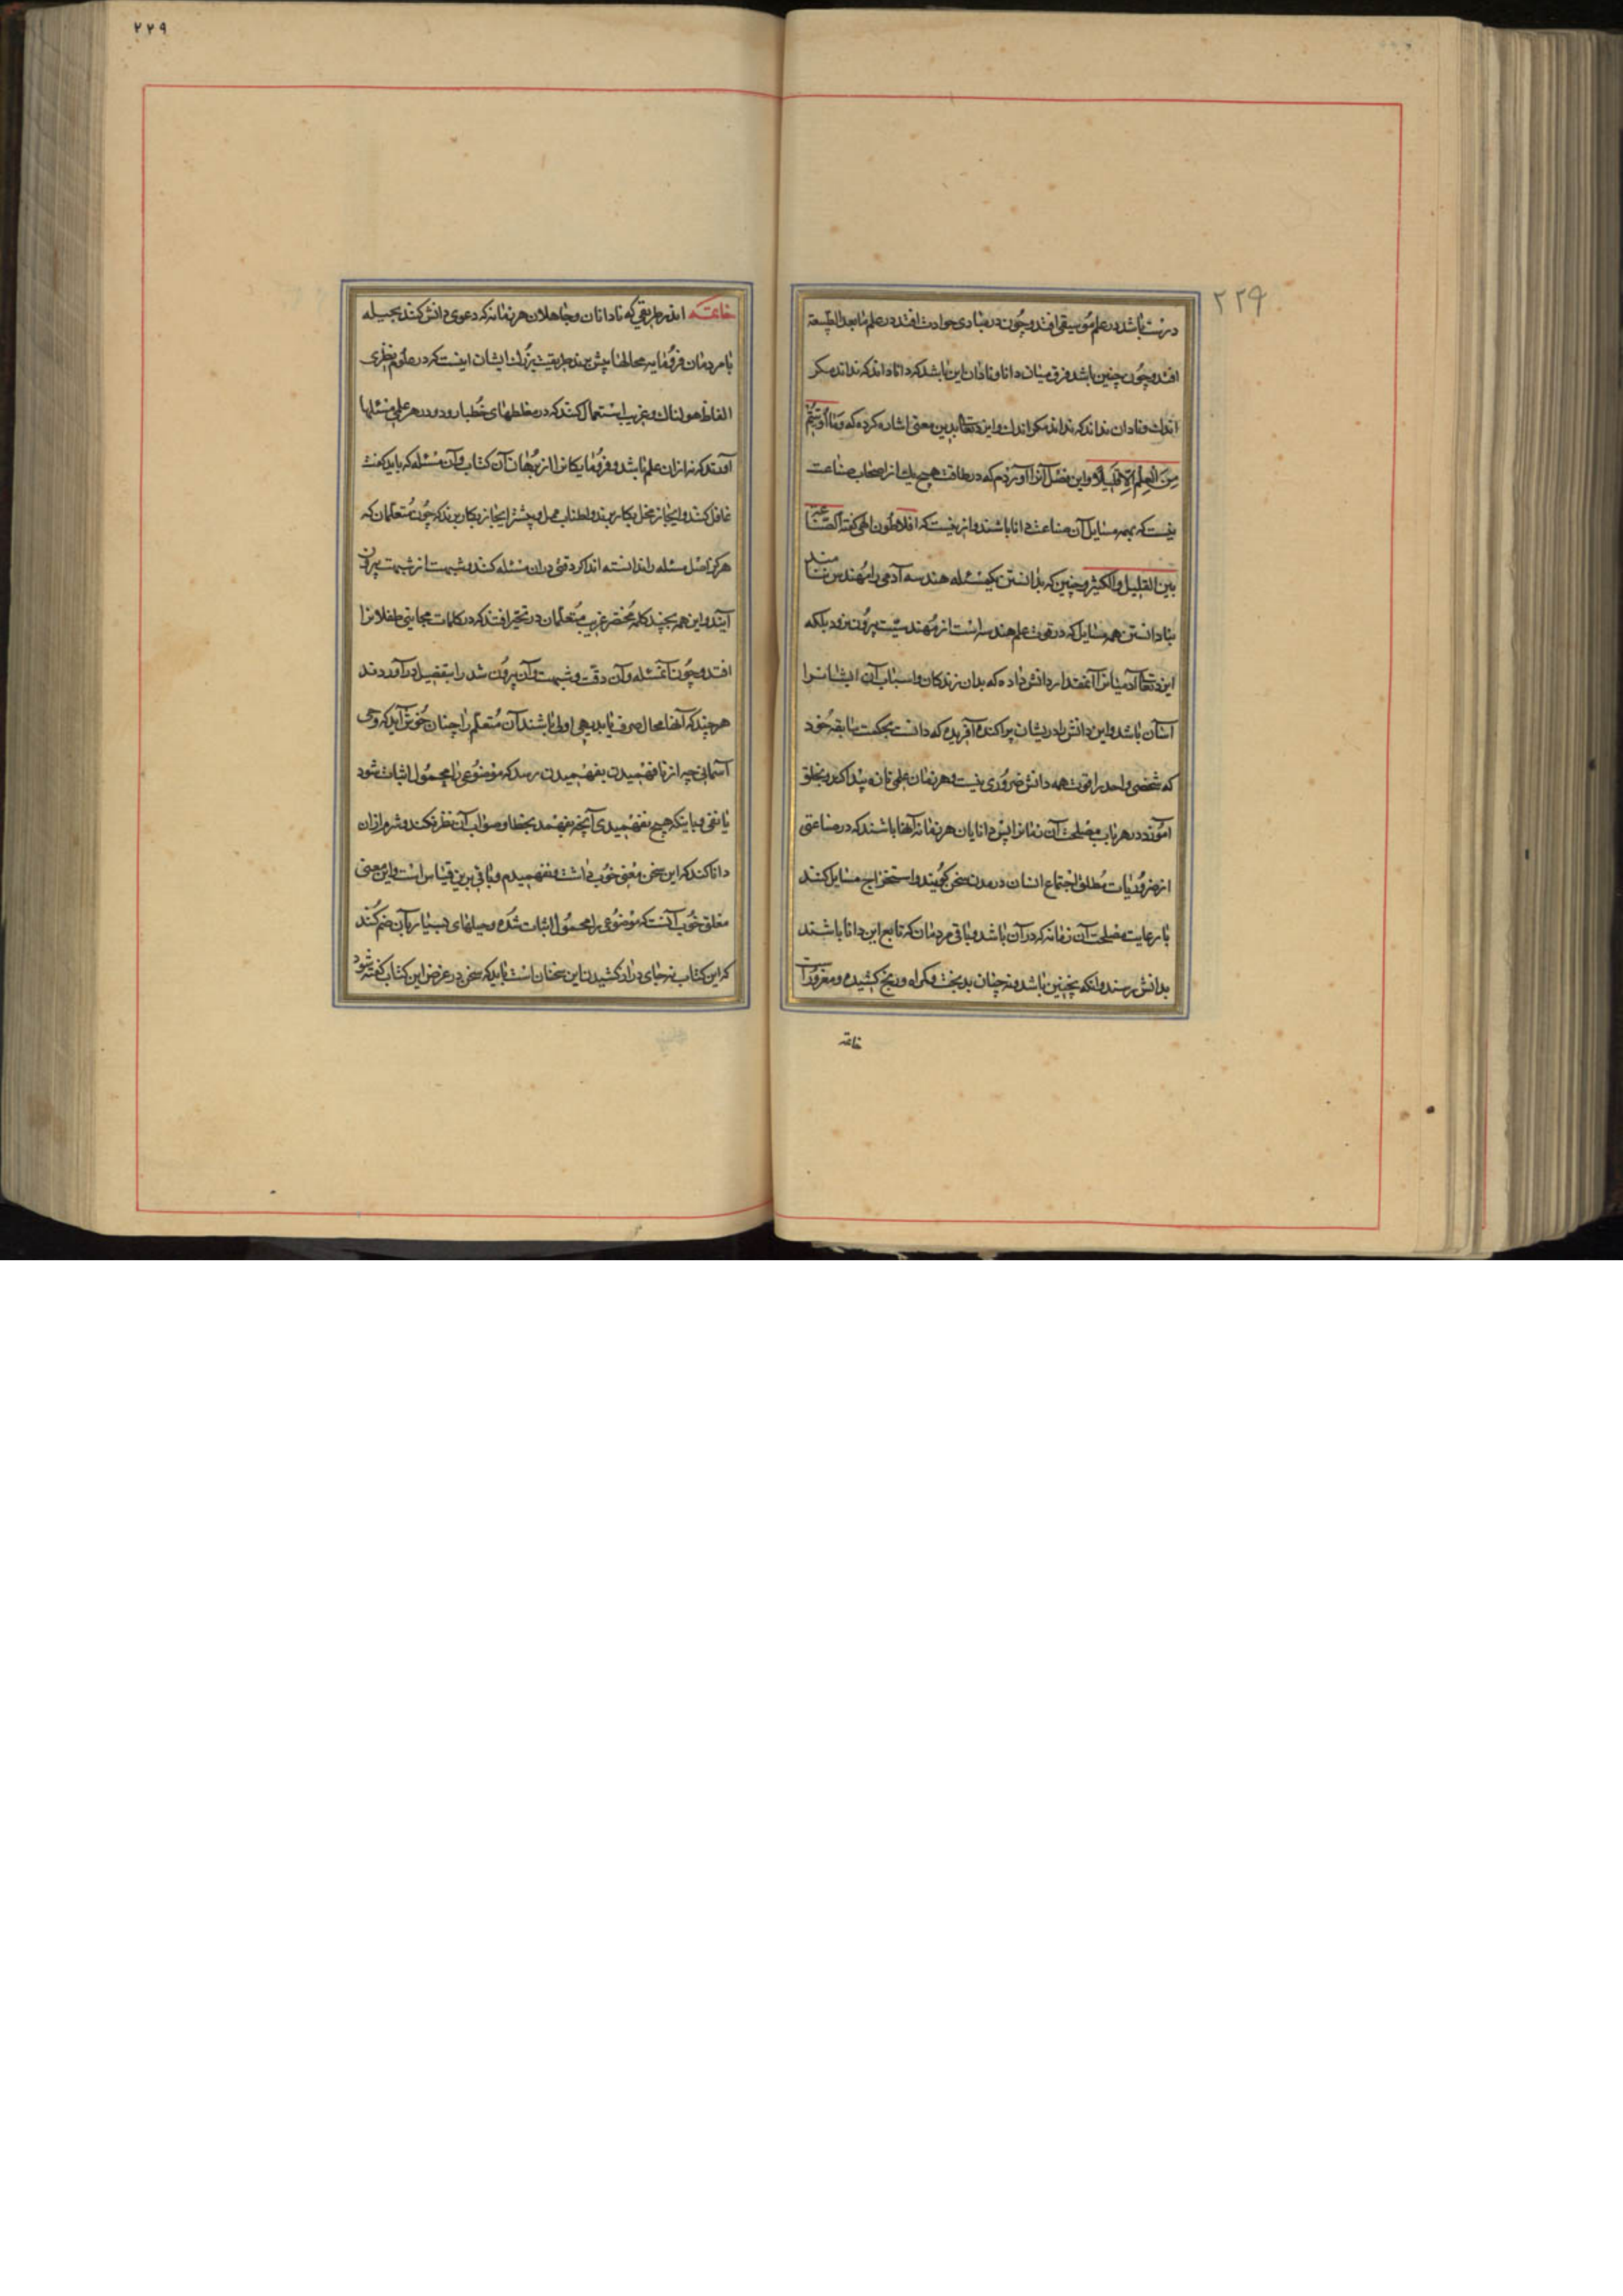 ۲۲۹
درست باشد در علم موسیقی افتد و چون در مبادی حوادث افتد در علم مابعد الطبیعة
افتد و چون چنین باشد فرق میان دانا و نادان این باشد که دانا داند که نداند مگر
اندك و نادان نداند که نداند مگر اندك و ایزد تعالی بدین معنی اشاره کرده که وما اوتیتم
مِنَ العِلمِ اِلّا قَلیلاً و این فصل آنرا آوردم که در طاقت هیچ یك از اصحاب صناعت
نیست که بهمه مسایل آن صناعت دانا باشند و ازینست که افلاطون الهی گفته الصناعة
بین القلیل والکثیر و چنین که بدانستن یکمسئله هندسه آدمی را مهندس نتوان
بنادانستن همه مسایل که در قوت علم هندسه است از مهندسیّت بیرون نرود بلکه
ایزد تعالی آدمیانرا آنمقدار دانش داده که بدان زندگان و اسباب آن ایشانرا
آسان باشد و این دانش را در ایشان پراکنده آفریده که دانست بحکمت سابقه خود
که شخصی واحد را قوت همه دانش ضروری نیست و هر زمان علمی تازه پیدا کند و بخلق
آموزد در هر باب مصلحت آن زمانرا پس دانایان هر زمانه آنها باشند که در صناعتی
از ضروریات مطلق اجتماع انسان در مدن سخن گویند و استخراج مسایل کنند
با رعایت مصلحت آن زمانه که در آن باشد و باقی مردمان که تابع این دانا باشند
بدانش رسند و آنکه نچنین باشد و نه چنان بدبخت و گمراه و رنج کشیده و مغرور است
خاتمه
۲۲۹
خاتمه اندر طریقی که نادانان و جاهلان هر زمانه که دعوی دانش کنند بحیله
با مردمان فرومایه محالها پیش برند طریقت بزرك ایشان اینست که در علوم نظری
الفاظ هولناك و غریب استعمال کنند که در مغلطهای خطبا رود و در هر علمی مسئلها
آورند که نه از آن علم باشد و فرومایکانرا از برهان آن کتاب و آن مسئله که باید گفت
غافل کنند و ایجاز مخل بکار برند و اطناب ممل و بیشتر ایجاز بکار برند که چون متعلمان که
هرگز اصل مسئله را ندانسته اند اگر دقتی در آن مسئله کنند و شبهت از شبهت بیرون
آیند و این همه بچند کلمه مختصر غریب متعلمان در تحیر افتند که در کلمات مجانین طفلانرا
افتد و چون آنمسئله و آن دقت و شبهت و آن بیرون شد را بتفصیل در آوردند
هرچند که آنها محال صرف یا بدیهی اولی باشند آن متعلم را چنان خوش آید که وحی
آسمانی چه از نافهمیدن بفهمیدن رسد که موضوعی را محمول اثبات شود
یا نفی و باینکه هیچ نفهمیدی آنچه بفهمد بخطا و صواب آن نظر نکند و شرم از آن
دانا کند که این سخن مغلق خوب داشت و نفهمیدم و باقی برین قیاس است و این معنی
مغلق خوب آنست که موضوعی را محمول اثبات شده و حیلهای بسیار بآن ضم کنند
که این کتاب نه جای دراز کشیدن این سخنان است باید که سخن در غرض این کتاب گفته شود